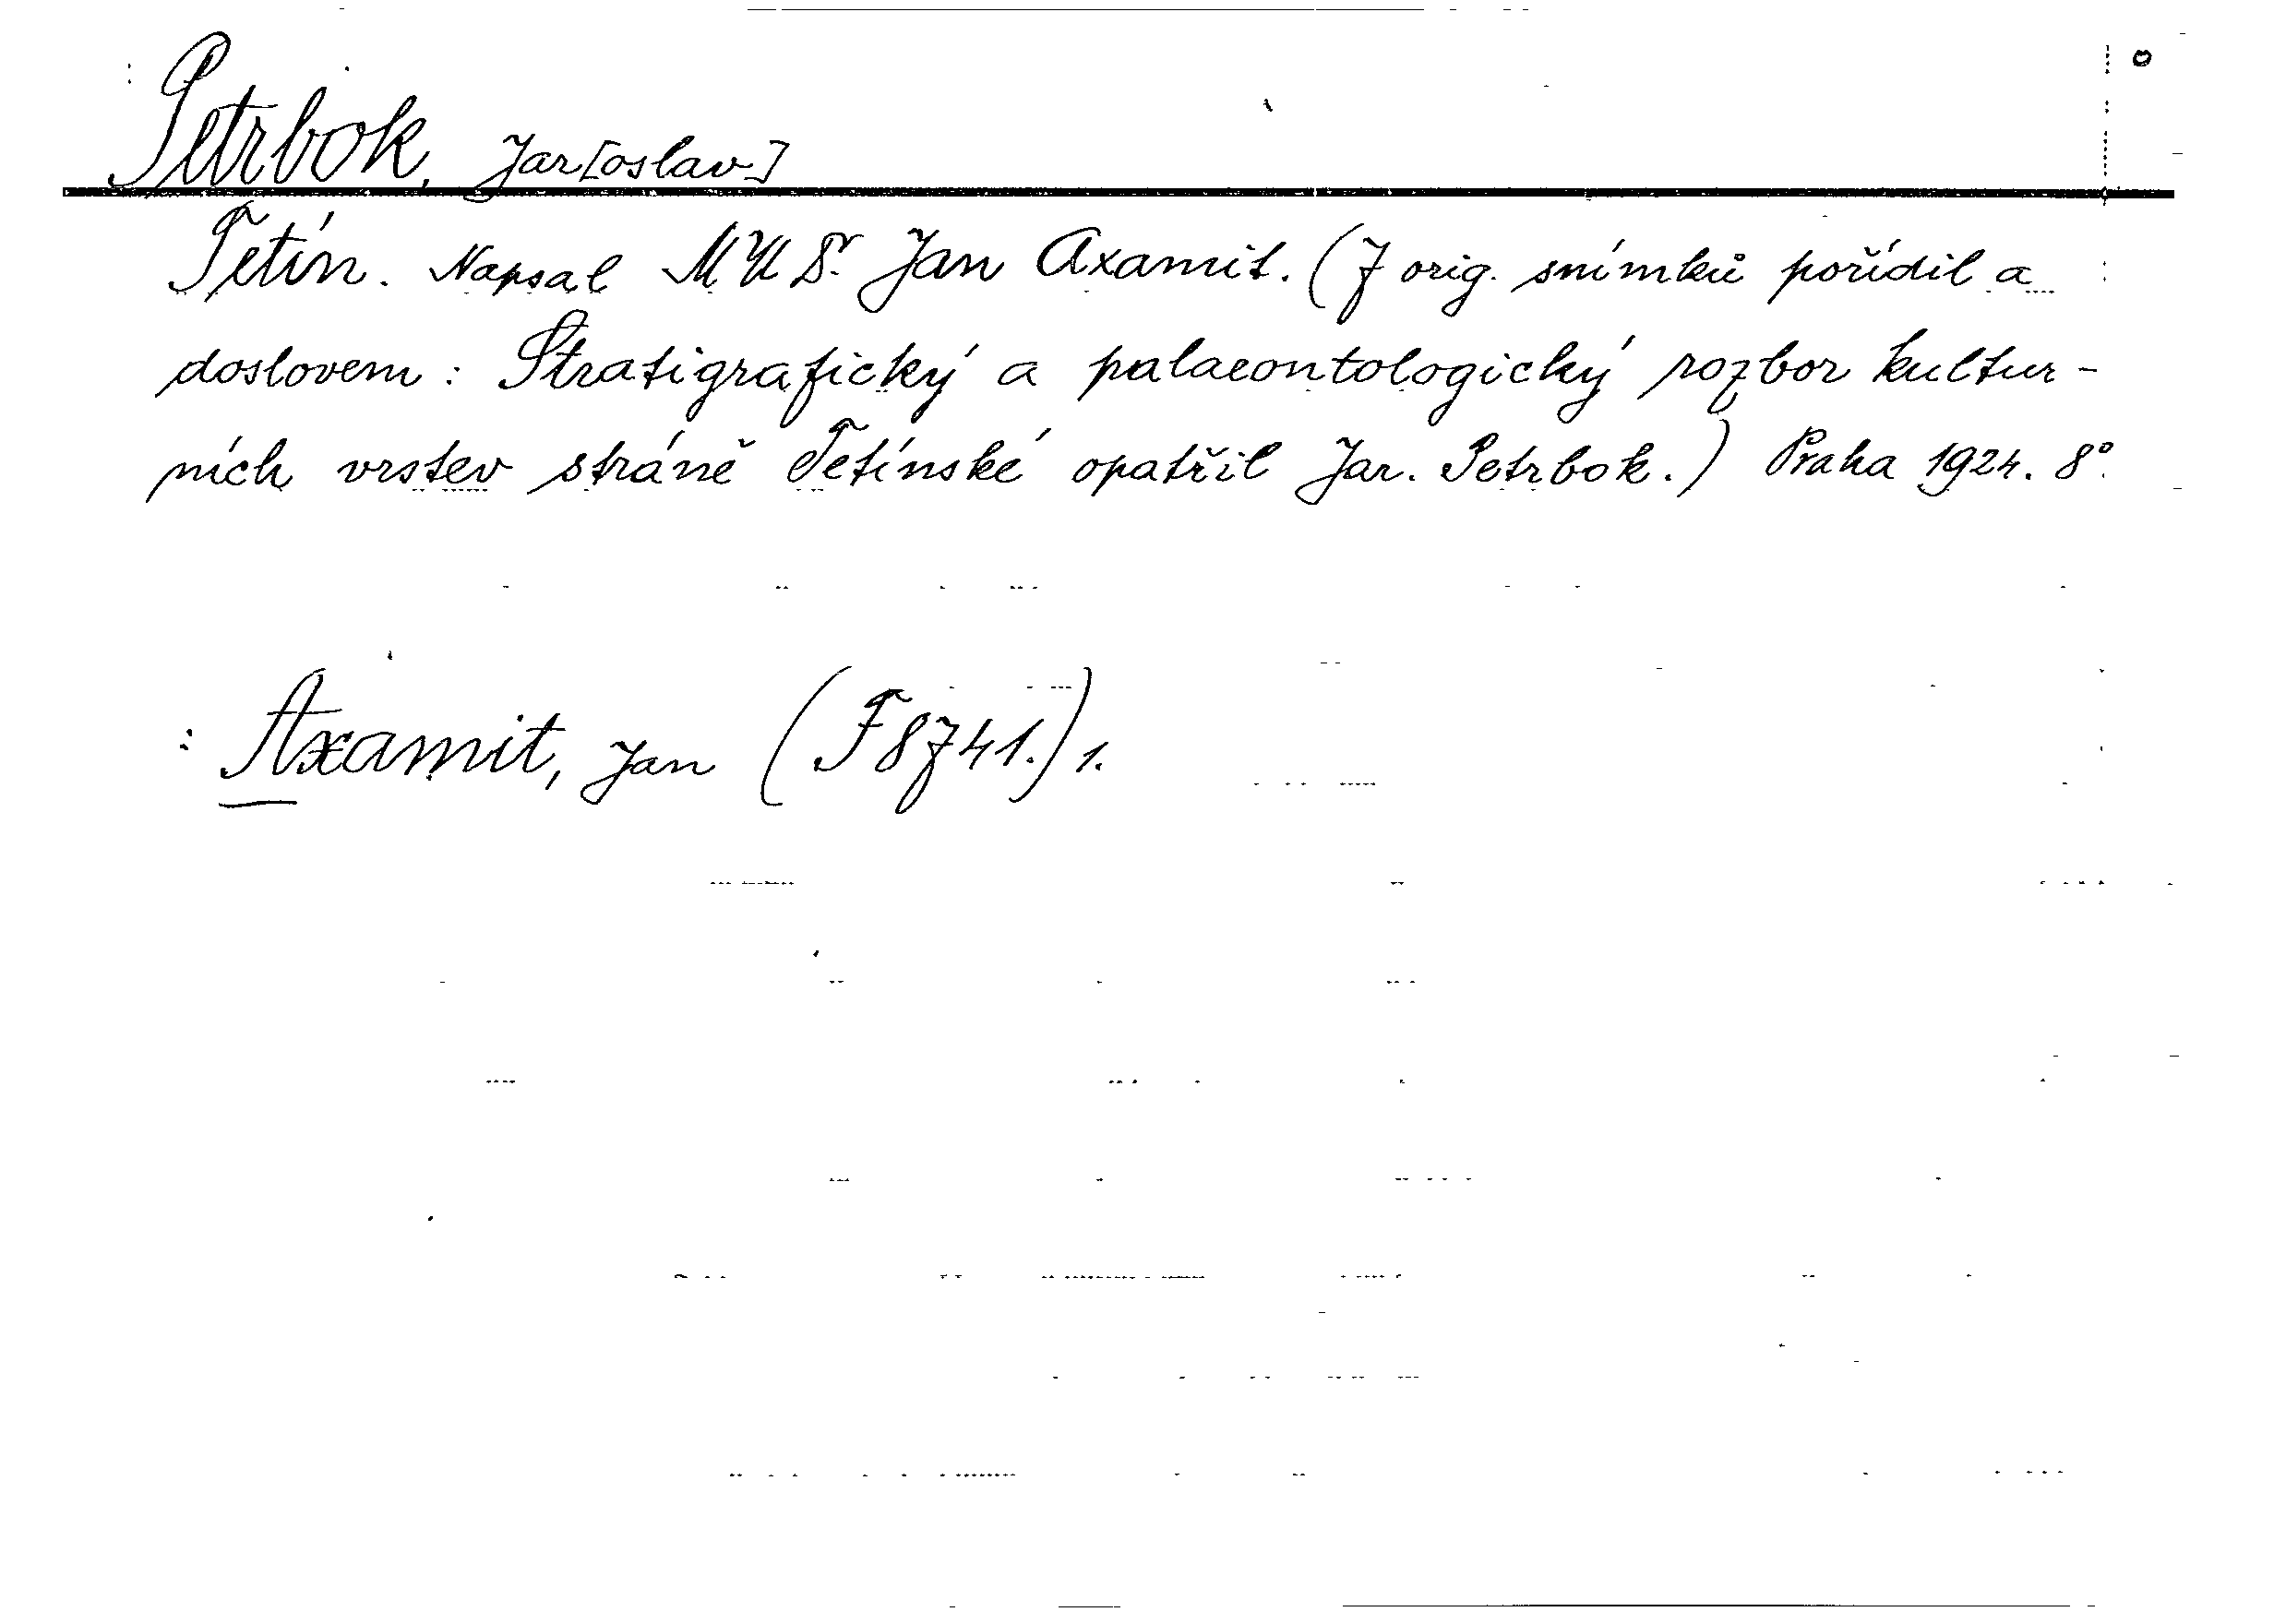 Petrbok, Jar[oslav]
Tetín. Napsal MUDr. Jan Axamit. (7 orig. snímků pořídil a
doslovem: Stratigrafický a palaeontologický rozbor kultur-
ních vrstev stráně Tetínské opatřil Jar. Petrbok.) Praha 1924. 8°.
: Axamit, Jan (F 8741.) 1.